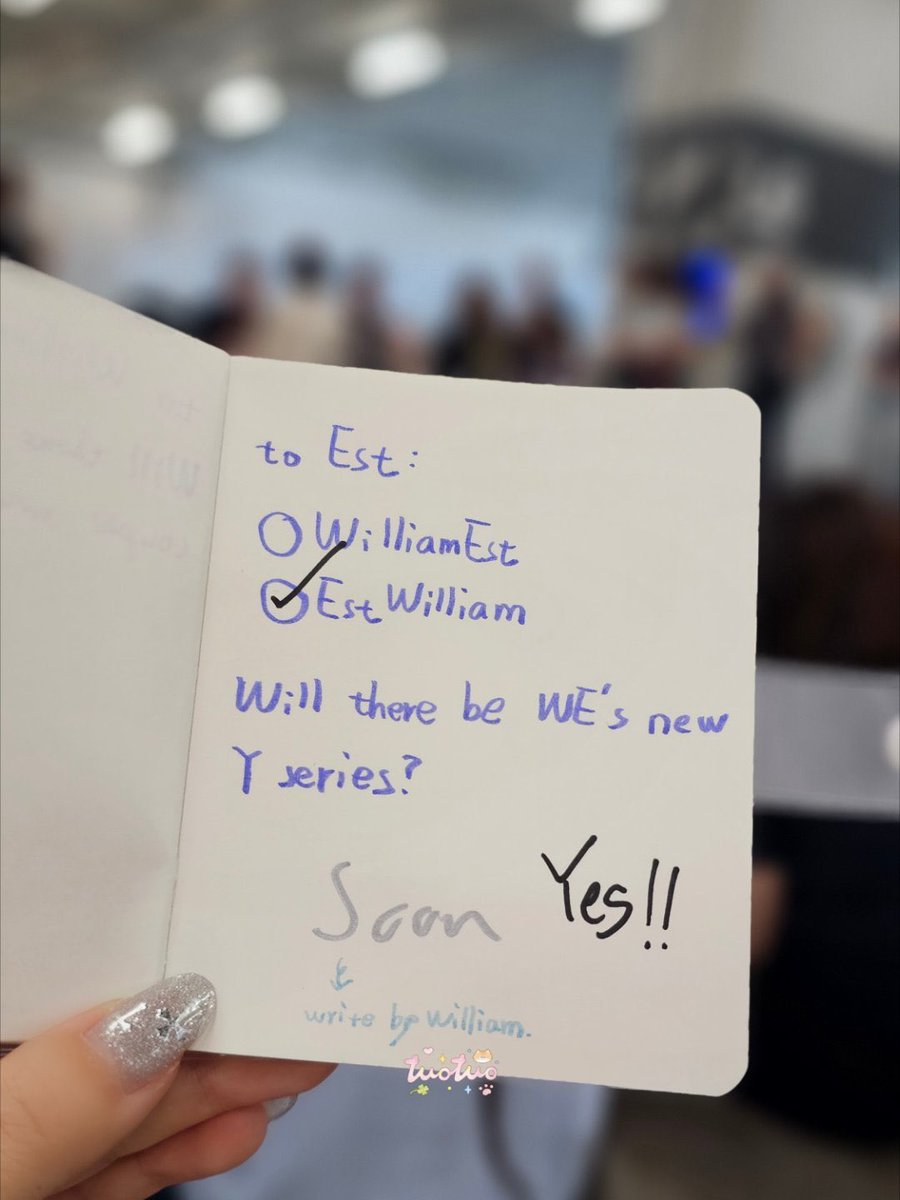 to Est:
WilliamEst
EstWilliam
Will there be WE's new
Y series?
Soon
Yes!!
write by william.
tuotuo